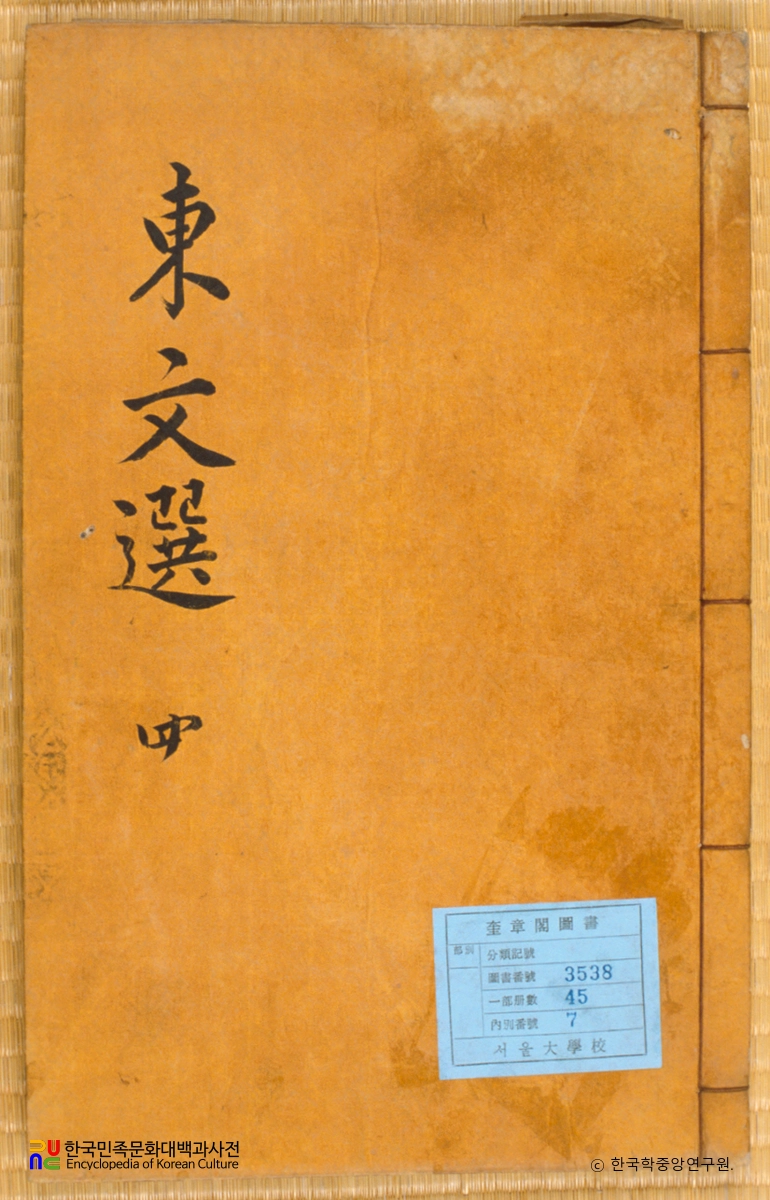 東文選 四
奎章閣圖書
部別
分類記號
圖書番號 3538
一部冊數 45
內別番號 7
서울大學校
한국민족문화대백과사전
Encyclopedia of Korean Culture
© 한국학중앙연구원.